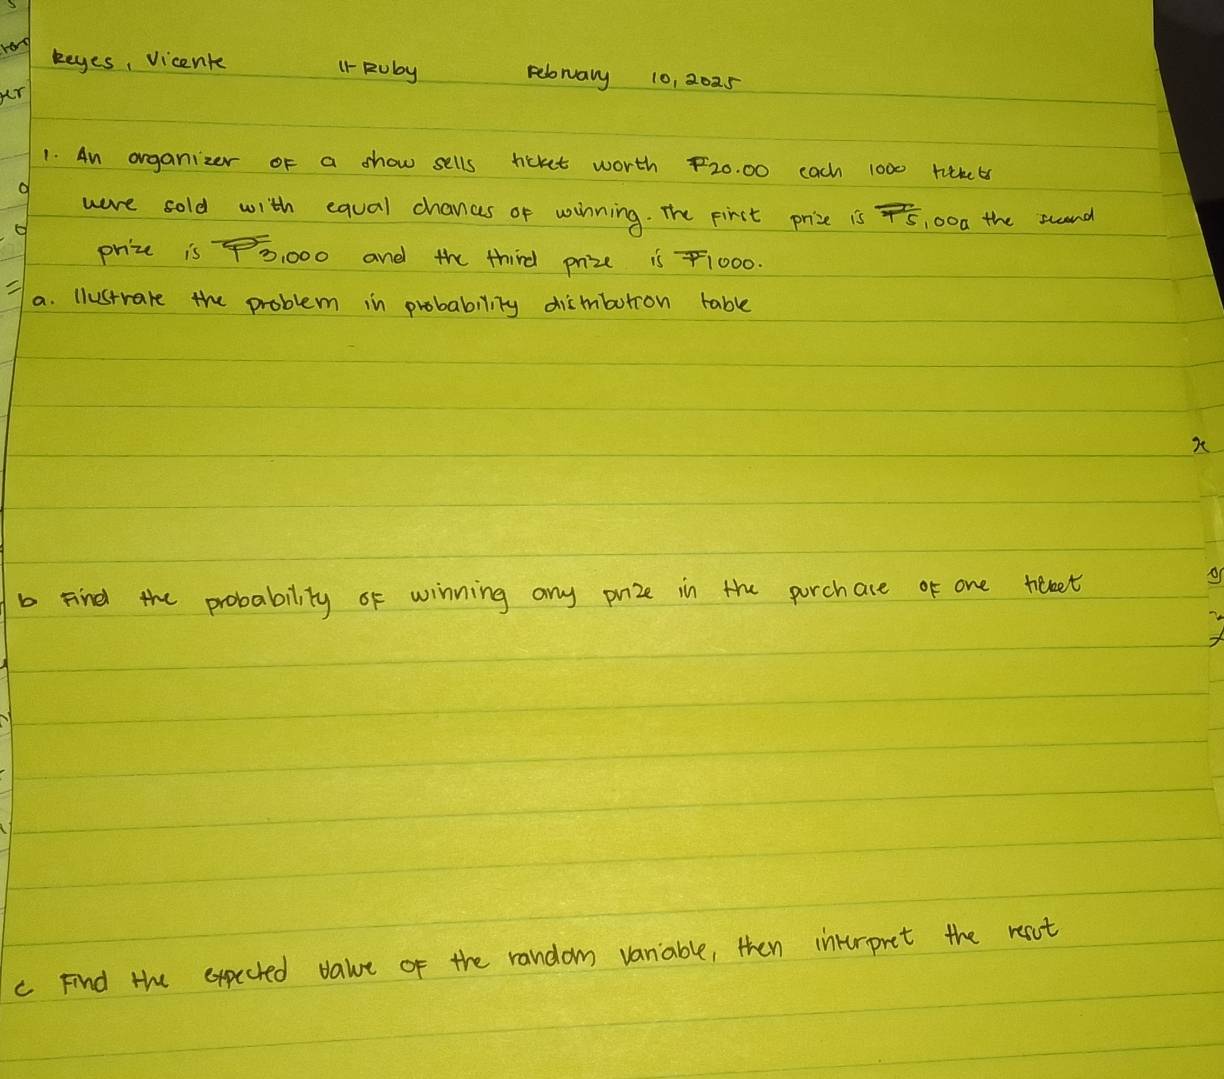 Reyes, Vicente 11-Ruby February 10, 2025
1. An organizer of a show sells ticket worth ₱20.00 each 1000 tickets
were sold with equal chances of winning. The first prize is ₱5,000 the second
prize is ₱3,000 and the third prize is ₱1000.
a. llustrate the problem in probability distribution table
b Find the probability of winning any prize in the purchase of one ticket
c Find the expected value of the random variable, then interpret the resut